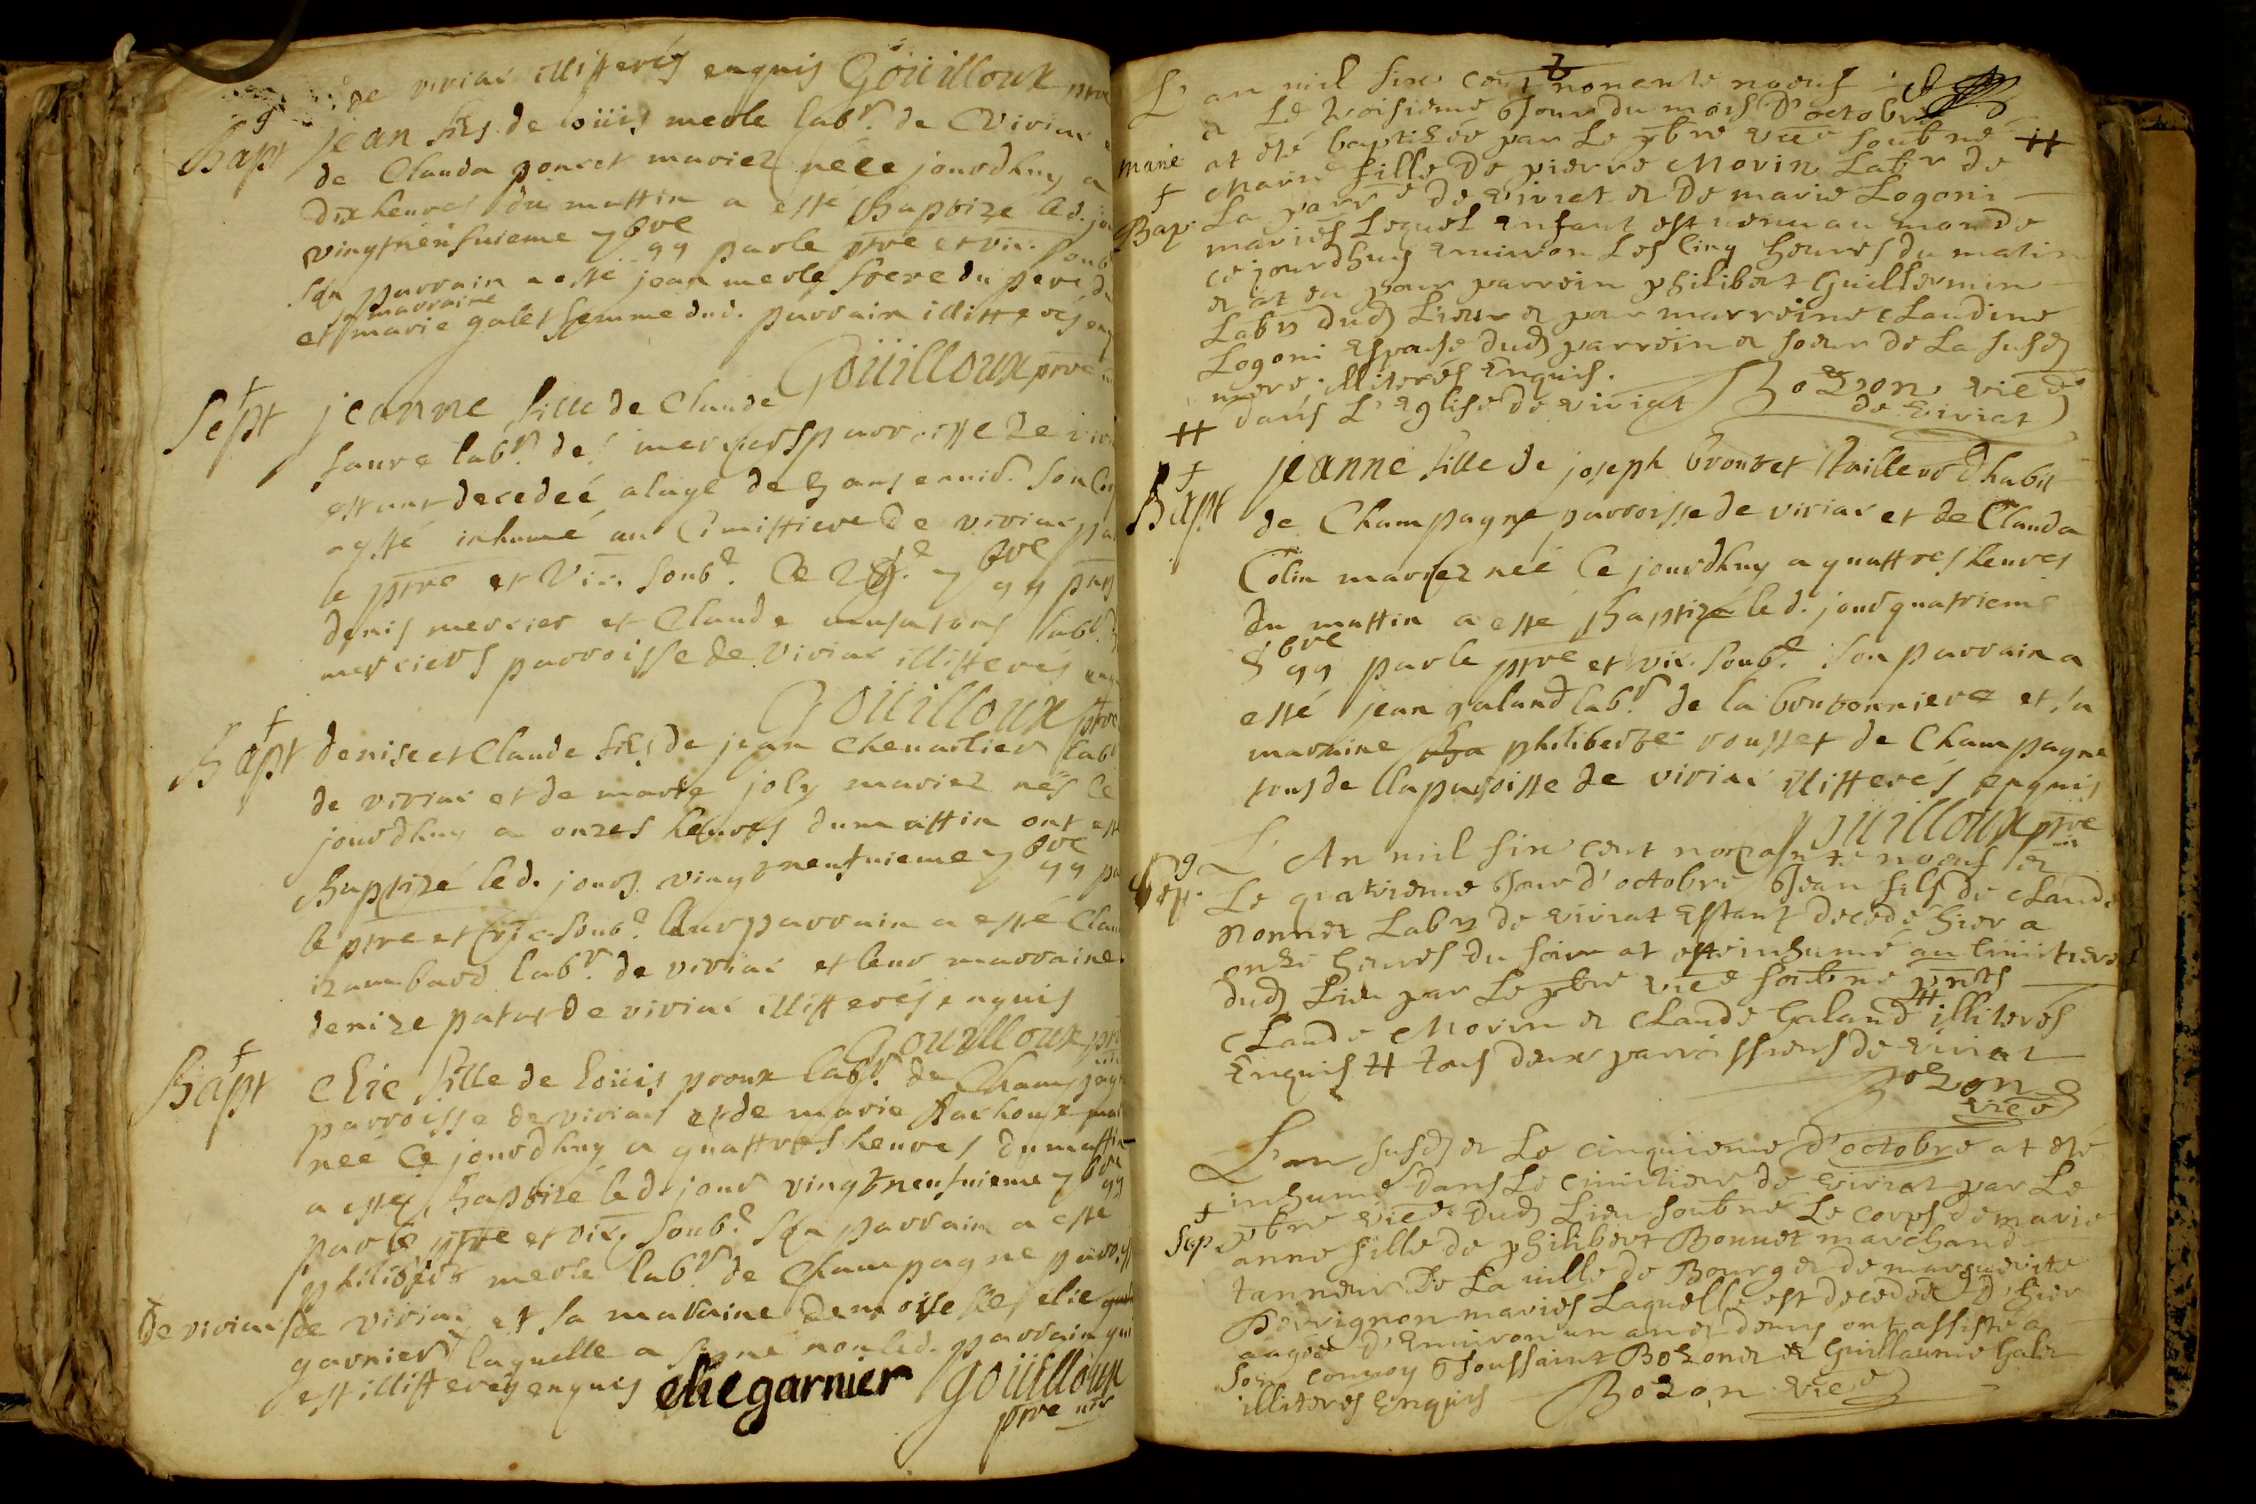 de viriat illitterés enquis Goüilloux ptre
Bapt jean fils de loüis merle lab.r de Viriat
de Clauda poncet mariez née jourdhuy a
dix heures du mattin a esté Baptizé led. jo
vingtneufuieme 7bre 99 par le ptre et vic. soub
son parrain a esté jean merle frere du pere d
marraine
et marie galet femme dud. parrain illitterés enq
Goüilloux ptre
Sept jeanne fille de Claude
faure lab.r des merciers parroisse de viri
estant decedeé alage de 3 ans enuid. son Co
a esté inhumé au Cimittiere de viriat pa
le ptre et Vic. soub.é Ce 29.e 7bre 99 pnts
denis mercier et Claude lab.r d
merciers parroisse de Viriat illitterés enq
Goüilloux ptre
Bapt denise et Claude fils de jean Chenailier lab.r
de viriat et de marie joly mariez nés Ce
jourdhuy a onzes heures du mattin ont esté
Baptizé led. jour vingtneufuieme 7bre 99 pa
le ptre et vic. soub.é leur parrain a esté Clau
izambard lab.r de viriat et leur marraine
denize patat de viriat illitterés enquis
Goüilloux ptre
Bapt Elie fille de loüis proux lab.r de Champagne
parroisse de viriat et de marie mar
neé Ce jourdhuy a quattres heures du mattin
a esté Baptizé led. jour vingtneufuieme 7bre 99
par le ptre et vic. soub.é son parrain a esté
philibert merle lab.r de Champagne parroisse
de viriat de viriat et sa maraine demoiselles elie
garnier laquelle a signé non led. parrain qui
est illitterés enquis elie garnier goüilloux
ptre vic
L'an mil six cent nonente noeuf
et Le troisieme Jour du mois d'octobre
at été baptisée par Le pbre vice soubné #
Marie Marie fille De pierre Morin Labr de
La parr.e de Viriat et De marie Logoni
Bap. mariés Lequel enfant est venu au monde
ce jourdhuy enuiron Les Cinq heures du matin
et at eu pour parrein philibert Guillermin
Labr dud Lieu et pour marreine Claudine
Logoni Espouse dud parrein et soeur de La susd
mere illiterés Enquis.
# dans L'Eglise de viriat Bozon vice
de Viriat
Bapt jeanne fille de joseph brouuet tailleur dhabit
de Champagne parroisse de viriat et de Clauda
Colin mariez neé Ce jourdhuy a quattres heures
du mattin a esté Baptizé led. jour quatrieme
8bre 99 par le ptre et vic. soub.é son parrain a
esté jean galand lab.r de la boutonniere et sa
maraine philiberte rousset de Champagne
tous de la parroisse de viriat illitterés enquis
goüilloux ptre
L'An mil six cent nonante noeuf et
Sep. Le quatrieme Jour d'octobre Jean fils de Claude
Nonnet Labr de viriat Estant decedé hier a
onze heures du soir at esté inhumé au Cimitiere
dud Lieu par Le pbre vice soubné pnts
Claude Morin et Claude Galand # illiterés
Enquis # tous deux parroissiens de viriat
Bozon
vice
L'an susd et Le cinquieme d'octobre at été
inhumé dans Le Cimitiere de viriat par Le
Sep. pbre vice dud Lieu soubné Le corps de marie
anne fille de philibert Bonnet marchand
tanneur De La uille de Bourg et de marguerite
Perrignon mariés Laquelle est decedée D'hier
aagée d'enuiron un an et demy ont assisté a
son conuoy Toussaint Bozon et Guillaume Galet
illiterés Enquis Bozon vice